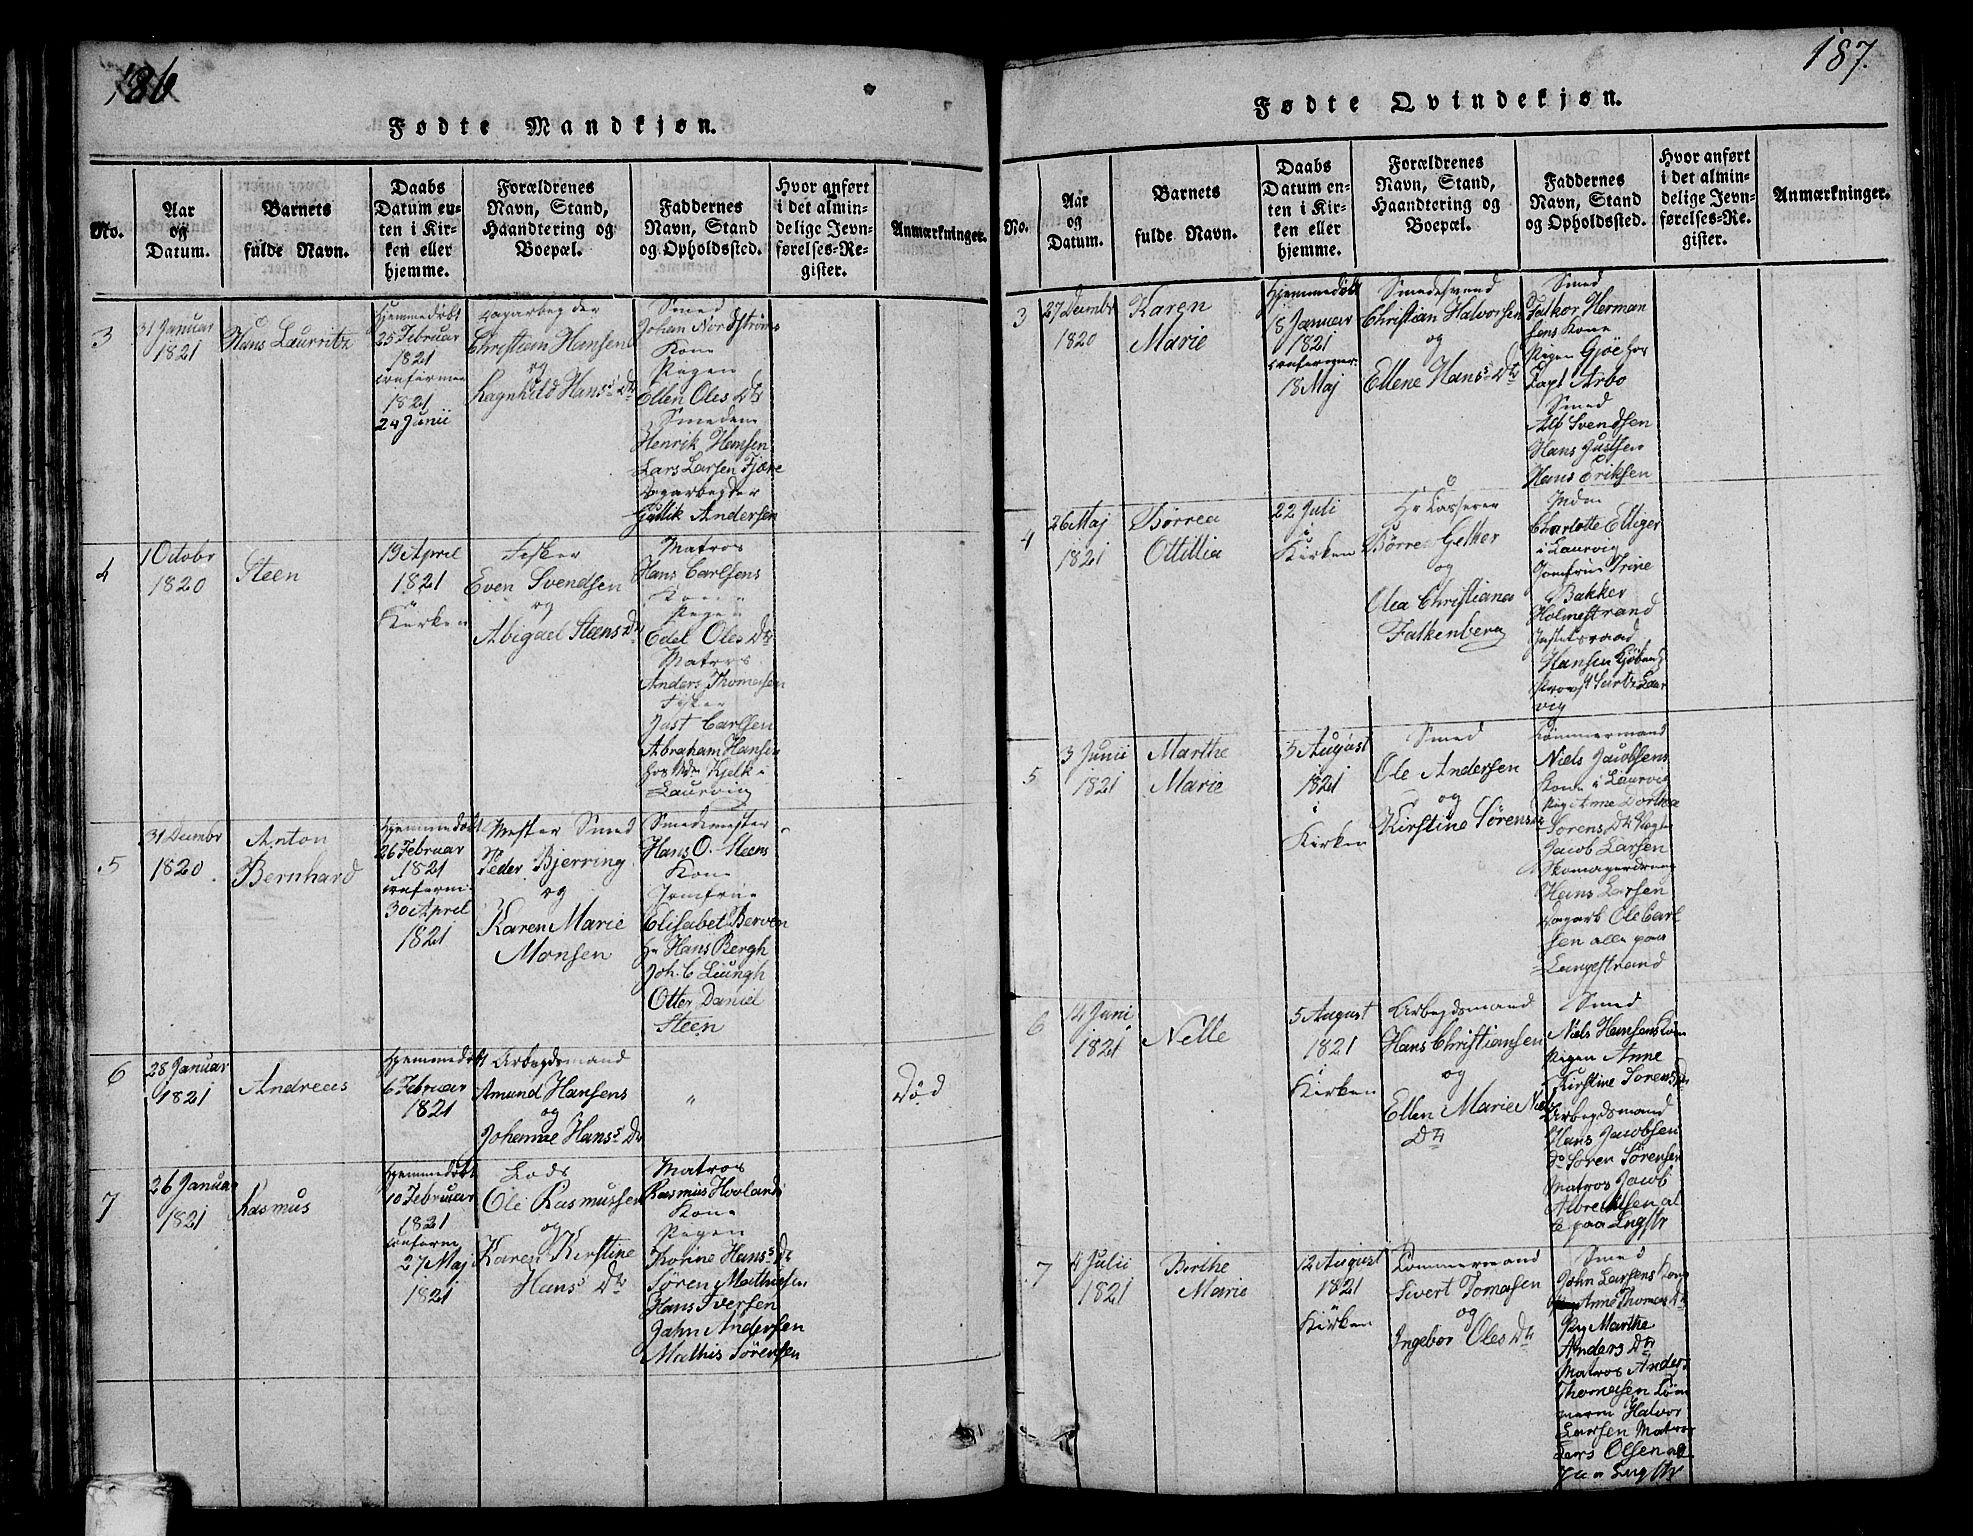 186
Fødte Mandkjøn.
No.
Aar
og
Datum.
Barnets
fulde Navn.
Daabs
Datum en-
ten i Kir-
ken eller
hjemme.
Forældrenes
Navn, Stand,
Haandtering og
Boepæl.
Faddernes
Navn, Stand
og Opholdssted.
Hvor anført
i det almin-
delige Jevn-
førelses-Re-
gister.
Anmærkninger.
3
31 Januar
1821
Hans Laurritz
Hjemmedøbt
25 Februar
1821
confirmer
1821
24 Junii
Dagarbeyder
Christian Hansen
og
Ragnhild Hans Dtr
Smed
Johan Nordstrøms
Kone
Pigen
Ellen Oles Dtr
Smedene
Henrik Hansen
Lars Larsen Fjære
Dagarbeyder
Gullik Andersen
4
1 Octobr
1820
Steen
19 April
1821
i
Kirken
Fisker
Even Svendsen
og
Abigael Steens D
Matros
Hans Carlsens
Kone
Pigen
Edel Oles Dtr
Matros
Anders Thomesen
Fisker
Jost Carlsen
Abraham Hansen
hos Md Kjelk i
Laurvig
5
31 Decembr
1820.
Anton
Bernhard
Hjemmedøbt
26 Februar
1821
confirmi
30 April
1821
Mester Smed
Peder Bjerring
og
Karen Marie
Monsen
Smedemester
Hans O. Steens
Kone
Jomfrue
Elisabet Berven
Hr Hans Bergh
Joh. C Liungh
Otter Daniel
Steen
6
28 Januar
1821
Andreas
Hjemmedøbt
6 Februar
1821
Arbeydsmand
Amund Hansens
og
Johanne Hans Dtr
"
Død
7
26 Januar
1821
Rasmus
Hjemmedøbt
10 Februar
1821
confirm
27 Maj
1821
Lods
Ole Rasmussen
og
Karen Kirstine
Hans Dtr
Matros
Rasmus Hovlands
Kone
Pigen
Thorine Hans Dtr
Søren Mathiesen
Hans Iversen
Jahn Andersen
Mathis Sørensen
187.
Fødte Qvindekjøn.
No.
Aar
og
Datum.
Barnets
fulde Navn.
Daabs
Datum en-
ten i Kir-
ken eller
hjemme.
Forældrenes
Navn, Stand,
Haandtering og
Boepæl.
Faddernes
Navn, Stand
og Opholdssted.
Hvor anført
i det almin-
delige Jevn-
førelses-Re-
gister.
Anmærkninger.
3
27 Decembr
1820
Karen
Marie
Hjemmedøbt
18 Januar
1821
confirmer
18 Maj
Smedesvend
Christian Halvorsen
og
Ellene Hans Dtr
Smed
Falkor Herman
sens Kone
Pigen Gjøe hos
Capt Arbo
Smed
Alf Svendsen
Hans Justsen
Hans Eriksen
4
26 Maj
1821
Børrea
Ottillia
22 Juli
i
Kirken
Hr Casserer
Børre Gether
og
Olea Christiana
Falkenberg
Charlotte Elliger
i Laurvig
Jomfrue Trine
Bakker
Holmestrand
Justitsraad
Hansen Kjøbenh
Provst Surtz Laur
vig
5
3 Junii
1821
Marthe
Marie
5 August
1821
i
Kirken
Smed
Ole Andersen
og
Kirstine Sørens
Tømmermand
Niels Jacobsens
Kone i Laurvig
Pig Anne Dorthea
Sørens Dtr
Jacob Larsen
Skomagerdreng
Hans Larsen
Dagarb Ole Carl
sen alle paa
Langestrand
6
14 Juni
1821
Nelle
5 August
1821
i
Kirken
Arbeydsmand
Hans Christiansen
og
Ellen Marie Niels
Dtr
Smed
Niels Hansens Kone
Pigen Anne
Kirstine Sørens D
Arbeydsmand
Hans Jacobsen
Do Søren Sørensen
Matros Jacob
Albrechtsen al
le paa Lngstr
7
4 Julii
1821
Birthe
Marie
12 August
1821
i
Kirken
Tømmermand
Sivert Tomesen
og
Ingebor Oles Dtr
Smed
John Larsens Kone
Anne Thomas Dtr
Pig Marthe
Anders Dtr
Matros Anders
Thomesen Tøm
merm Halvor
Larsen Matros
Lars Olsen alle
paa Lngstr